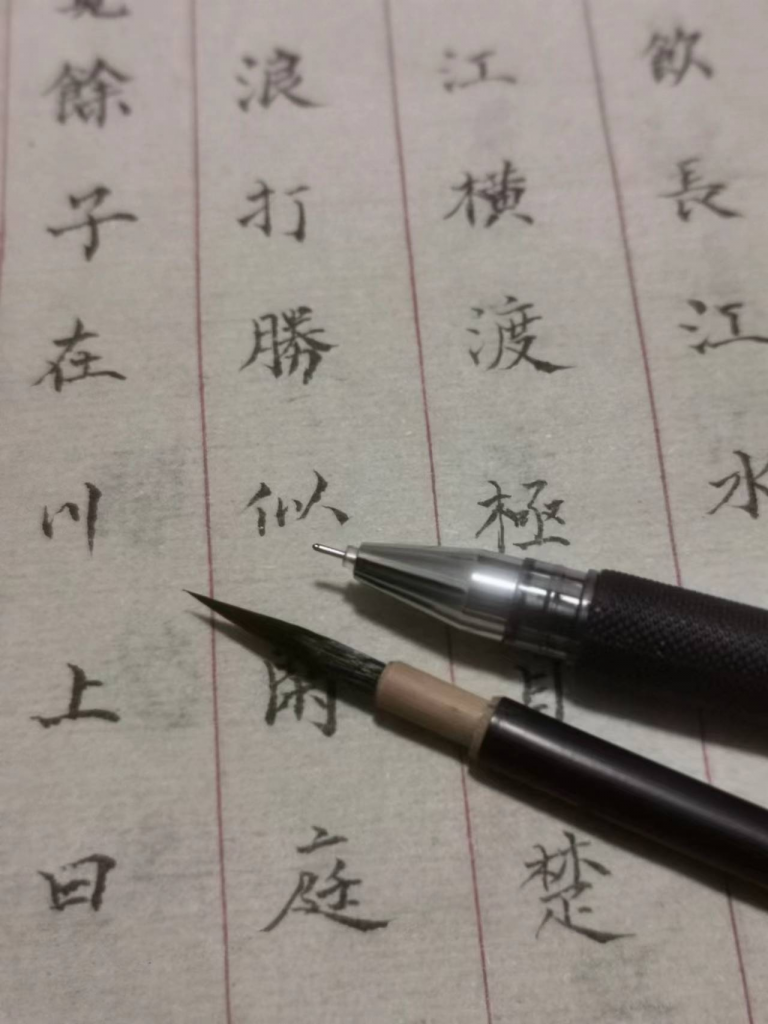 飲長江水
江橫渡極目楚
浪打勝似庭
餘子在川上曰